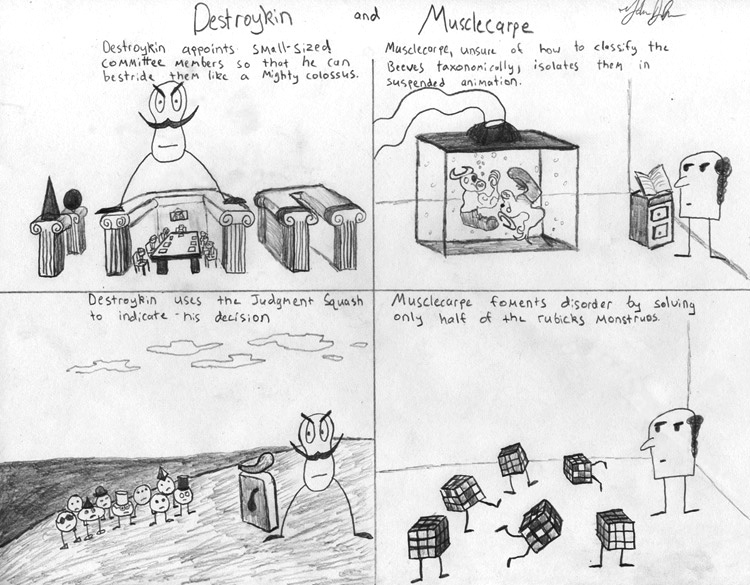 Destroykin and Musclecarpe
Destroykin appoints small-sized
committee members so that he can
bestride them like a Mighty colossus.
Musclecarpe, unsure of how to classify the
Beeves taxonomically, isolates them in
suspended animation.
Destroykin uses the Judgment Squash
to indicate his decision
Musclecarpe foments disorder by solving
only half of the rubicks Monstruos.